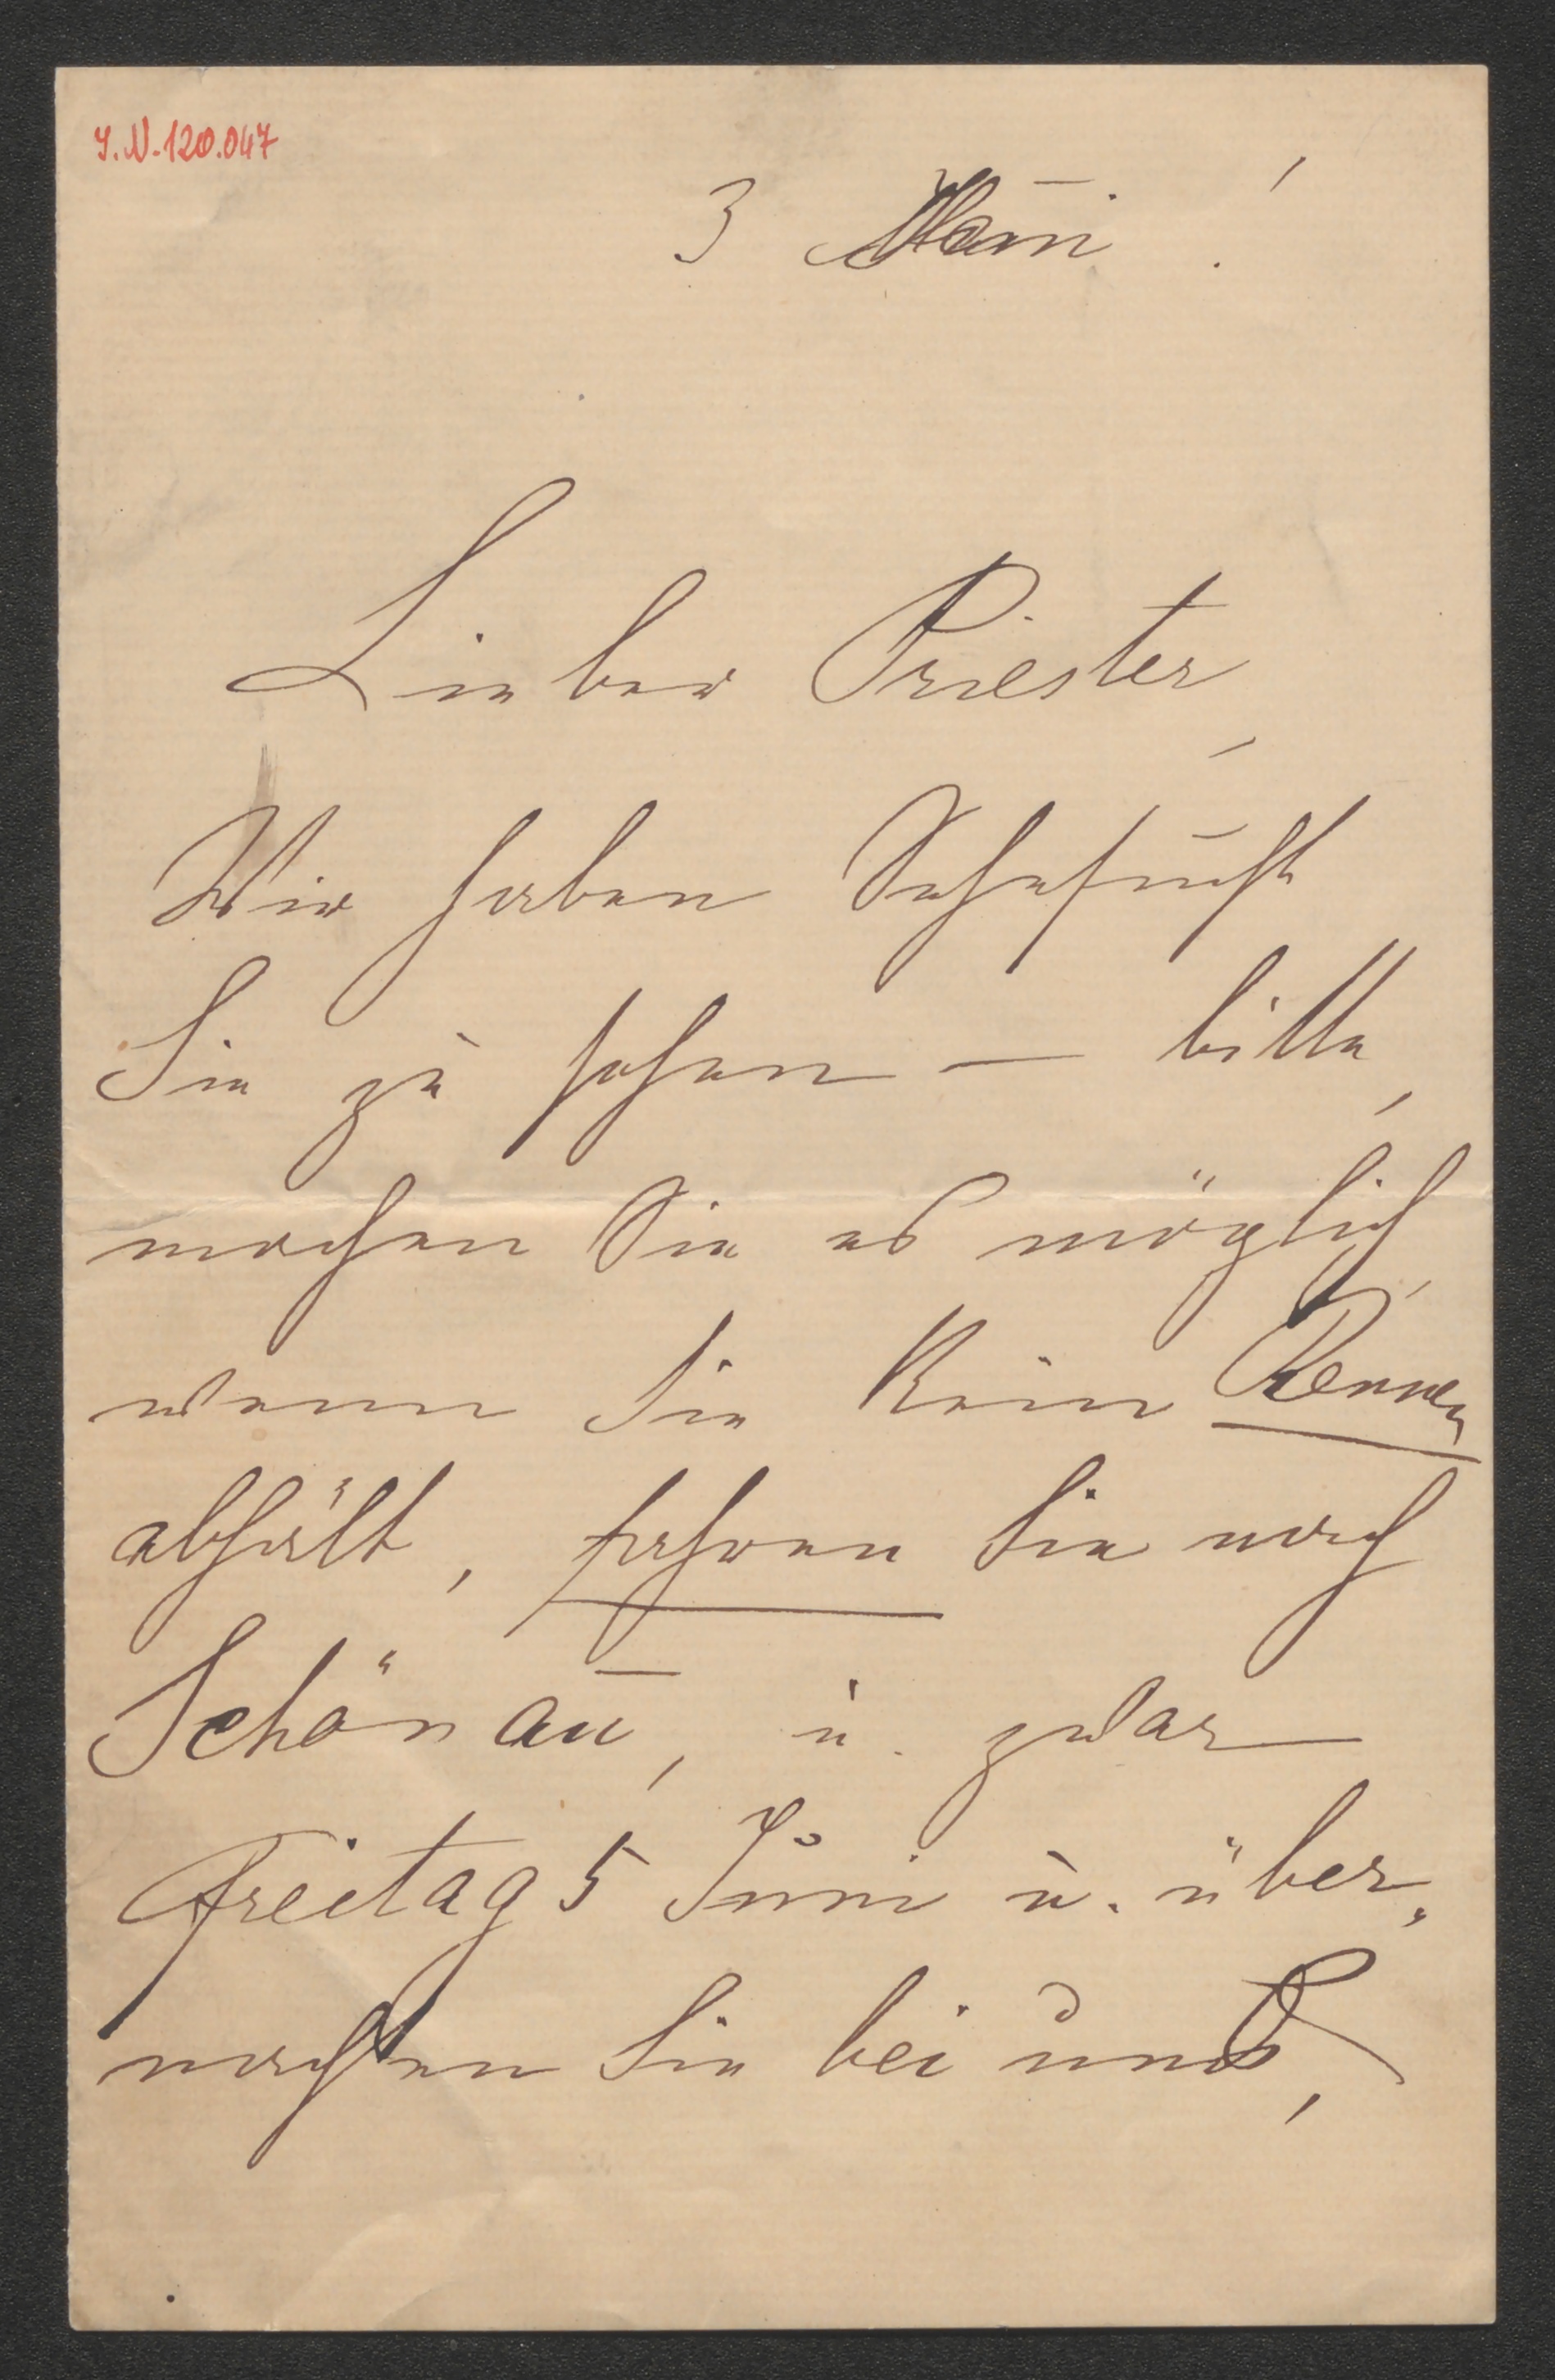 I.N. 120.047
3 Mai !
Lieber Priester,
Wir haben Sehnsucht
Sie zu sehen — bitte,
machen Sie es möglich,
wenn Sie kein Rennen
abhält, fahren Sie nach
Schönau, u. zwar
Freitag 5 Juni u. über„
nachten Sie bei uns,